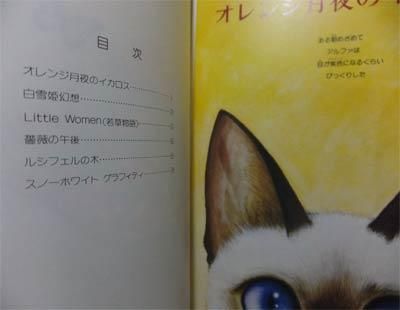 目次
オレンジ月夜のイカロス
白雪姫幻想
Little Women(若草物語)
薔薇の午後
ルシフェルの木
スノーホワイト グラフィティ
オレンジ月夜の
ある朝めざめて
アルファは
目が紫色になるくらい
びっくりした